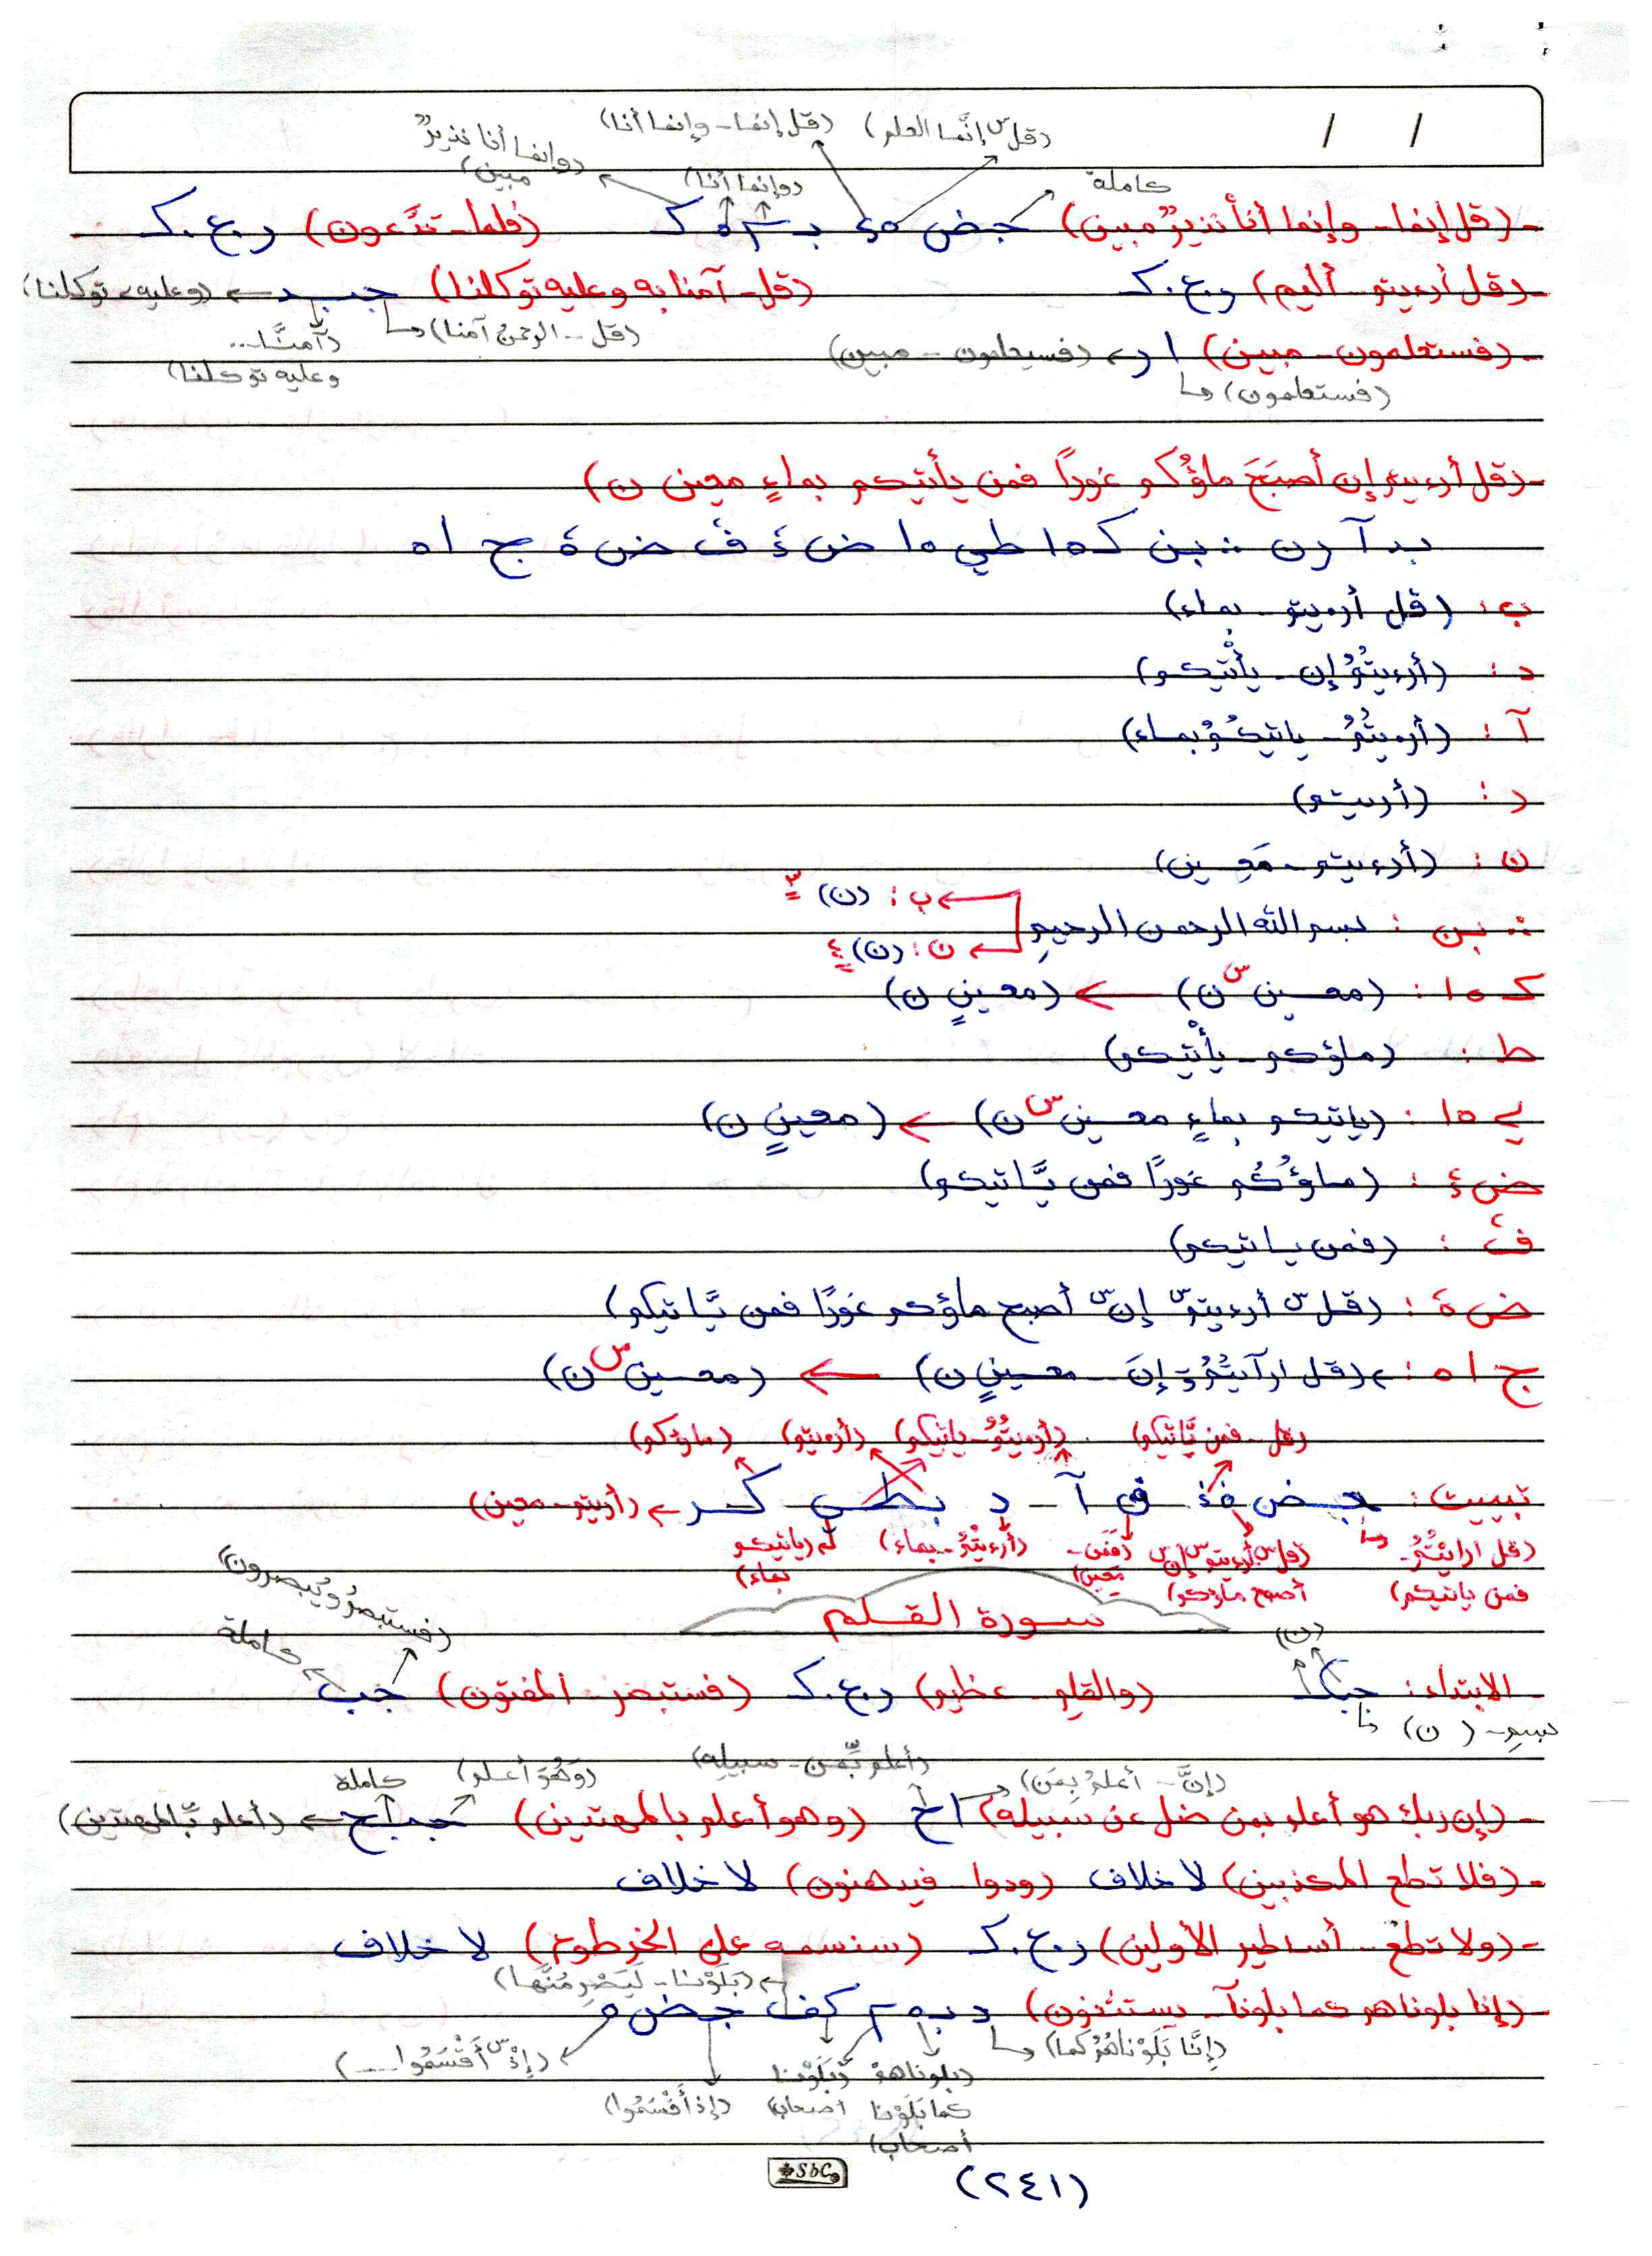 (قل إنما - وإنما أنا) (قل س إنَّما العلم)
(وإنما أنا نذيرٌ مبين) (وإنما أنا) كاملة
- (قل إنما - وإنما أنا نذيرٌ مبين) جـ ض (فلما - تدَّعون) ر.ع.كـ
- (قل أرءيتم - أليم) ر.ع.كـ (قل - آمنا به وعليه توكلنا) جـ بـ د ← (وعليه توكلنا)
(قل - الرحمن آمنا) (آمنَّا.. وعليه توكلنا)
- (فستعلمون - مبين) ا ر ← (فسيعلمون - مبين)
(فستعلمون)
- (قل أرءيتم إن أصبَحَ ماؤُكم غورًا فمن يأتيكم بماءٍ معين ن)
بـ د آ ر ن ∴ بن كـ ١٥ ط ي ١٥ ض ئ ف ض ة ج ١٥
ب : (قل أرءيتم - بماء)
د : (أرءيتمُ إن - يأْتيكم)
آ : (أرءيتمُ - ياتيكمُ بماء)
ر : (أريتم)
ن : (أرءيتم - مَعِين)
∴ بن : بسم الله الرحمن الرحيمِ ← ب : (ن) ٣
← ن : (ن) ٤
كـ ١٥ : (معين س ن) ← (معينٍ ن)
ط : (ماؤكم - يأْتيكم)
ي ١٥ : (ياتيكم بماءٍ معين س ن) ← (معينٍ ن)
ض ئ : (ماؤُكُم غورًا فمن يَّاتيكم)
ف : (فمن ياتيكم)
ض ة : (قل س أرءيتم س إن س أصبح ماؤكم غورًا فمن يَّاتيكم)
ج ١٥ : ← (قل ارآيتُمُ إنَ - معينٍ ن) ← (معين س ن)
(قل - فمن يَّاتيكم) (أرءيتمُ - ياتيكم) (أرءيتم) (ماؤكم)
تبييت : جـ ض ق آ د بـ ط ي كـ ر ← (أريتم - معين)
(قل ارايتمُ - فمن ياتيكم) (قل س أرءيتم س إن س أصبح ماؤكم) (فمَن - معين) (أرءيتمُ - بماء) (ياتيكم بماء)
سورة القلم
(فستبصرُ ويُبصرون) كاملة (ن)
- الابتداء : (والقلم - عظيم) ر.ع.كـ (فستبصر - المفتون) جـ ب
بسمِ - (ن)
(إنَّ - أعلمُ بِمَن) (أعلم بِّمن - سبيله) (وهُوَ أعلم) كاملة
- (إن ربك هو أعلم بمن ضل عن سبيله) ا خ (وهو أعلم بالمهتدين) جـ بـ ا ح ← (أعلم بِّالمهتدين)
- (فلا تطع المكذبين) لا خلاف (ودوا - فيدهنون) لا خلاف
- (ولا تطع - أساطير الأولين) ر.ع.كـ (سنسمه على الخرطوم) لا خلاف
← (بَلَوْنا - لَيَصْرِمُنَّها)
- (إنا بلوناهم كما بلونآ - يستثنون) د بـ كف جـ ض
(إنَّا بَلَوْناهُمُ كما) (بلوناهمْ كما بَلَوْنا أصحاب) (بَلَوْنا أصحاب) (إذ أَقْسَمُوا) (إذْ س أَقْسَمُوا ...)
SbC
(٢٤١)